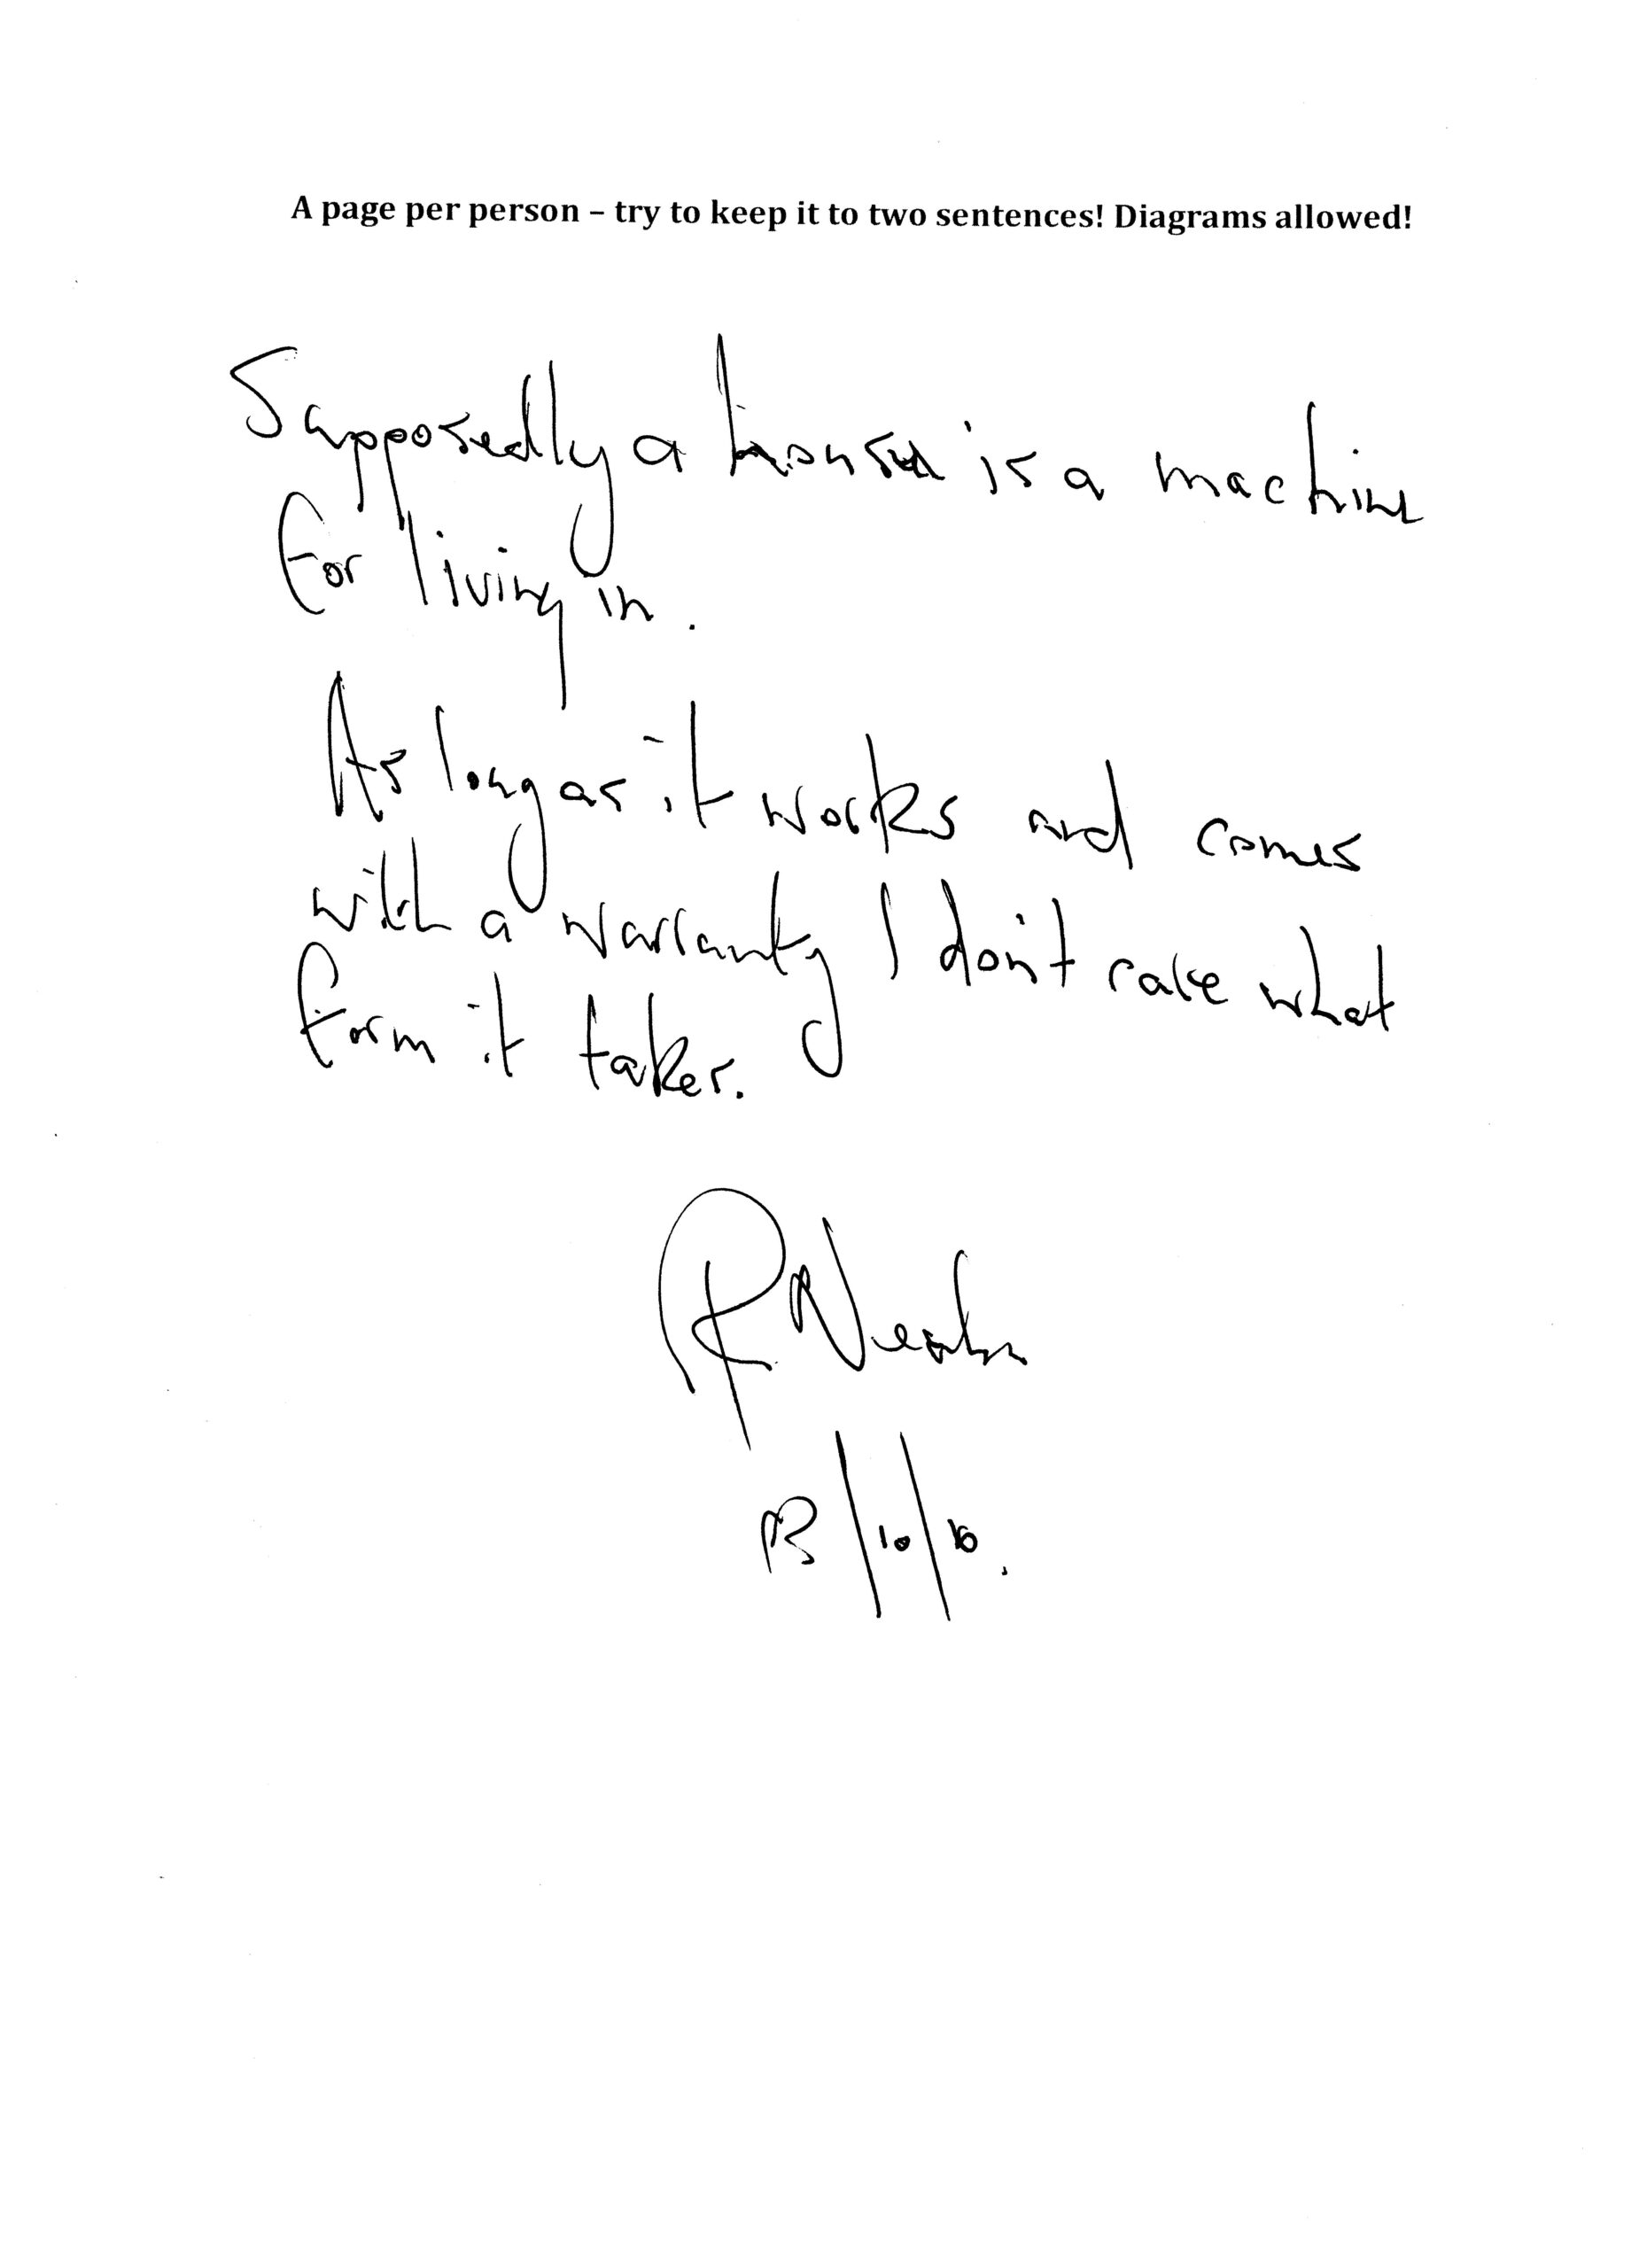 A page per person – try to keep it to two sentences! Diagrams allowed!
Supposedly a house is a machine
for living in.
As long as it works and comes
with a warranty I don't care what
form it takes.
13/10/10.